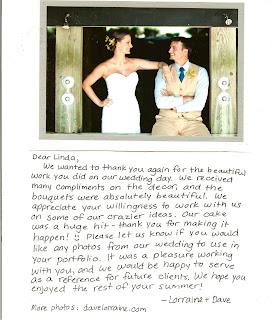 Dear Linda,
We wanted to thank you again for the beautiful
work you did on our wedding day. We received
many compliments on the decor, and the
bouquets were absolutely beautiful. We
appreciate your willingness to work with us
on some of our crazier ideas. Our cake
was a huge hit - thank you for making it
happen! :) Please let us know if you would
like any photos from our wedding to use in
your portfolio. It was a pleasure working
with you, and we would be happy to serve
as a reference for future clients. We hope you
enjoyed the rest of your summer!
- Lorraina + Dave
More photos: davelorraine.com